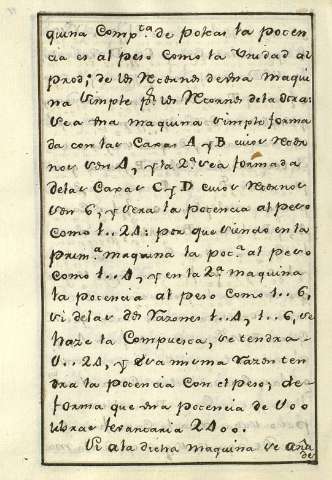 quina Comp.ta de Poleas la Potencia
cia es al peso como la Unidad al
Prod; de los Retornos de una maqui
na simple p.r los Retornos de la otra:
sea una maquina simple forma
da con las Caxas A y B cuios Retor
nos son 4, y la 2.a sea formada
de las Caxas C y D cuios Retornos
son 6, y sera la Potencia al peso
como 1..24: por que siendo en la
Prim.a maquina la pot.a al peso
como 1..4, y en la 2.a maquina
la potencia al peso como 1..6,
si de las dos razones 1..4, 1..6, se
haze la Compuesta, se tendra
1..24, y esta misma razon ten
dra la potencia con el peso; de
forma que una potencia de 100
libras levantaria 2400.
Si a la dicha maquina se aña
de